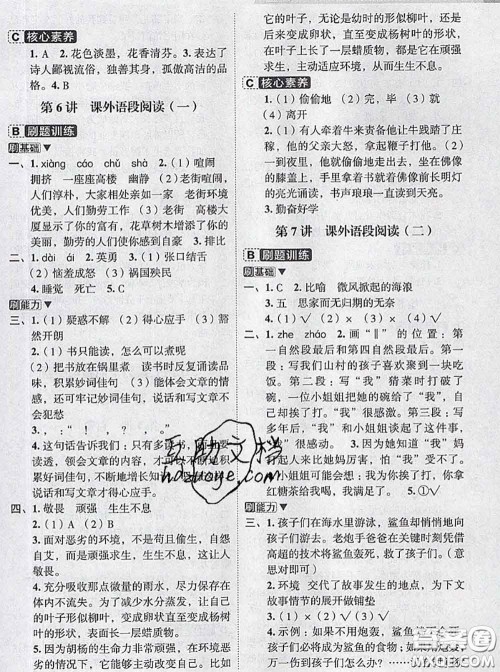 C 核心素养
1. A 2. 花色淡墨，花香清芬。3. 表达了
诗人鄙视流俗，独善其身，孤傲高洁的品
格。4. B
第 6 讲 课外语段阅读（一）
B 刷题训练
刷基础
一、1. xiàng cáo chǔ shà 2.（1）喧闹
拥挤 一座座高楼（2）喧闹 老街
人们淳朴，大家相处亲如一家 老街环境
优美，人们勤劳工作（3）老街 高楼大
厦显示了你的富有，花草树木增添了你的
美丽，勤劳的人们使你感到自豪 3. 排比
二、1. dài ái 2. 英勇 3.（1）张口结舌
（2）恼羞成怒（3）祸国殃民
4. 睡觉 死亡 5. C
刷能力
三、1.（1）疑惑不解（2）得心应手（3）豁
然开朗
2.（1）书只能读，怎么可以煮呢？
（2）把书放在锅里煮 读书时反复诵读品
味，积累妙词佳句，能体会文章的情
感，还牢记妙词佳句，说话和写文章
不犯愁
3. ，：“！，？，。”
4. 这句话告诉我们：只有多读书，
读透，领会文章的内容，不断积
累好词佳句，不断地增长知
说话和写文章才得心应手。
四、1. 敬畏 顽强 生生不息
2.（1）A（2）B
3. 面对恶劣的环境，不是苟且偷生，自怨
自哀，而是顽强求生，生生不息，这让人
敬畏。
4. 充分吸收那点微量的雨水，尽力保存在
体内不流失。为了减少水分蒸发，为了更
好地适应环境，将叶子直接变成杨树叶
的形状，表面一层蜡质物。
5. 胡杨的生命力非常顽强
它的叶子，无论是幼时的形似柳叶，还是
变成卵状，直至变成杨树叶的形状，
叶子上的一层蜡质物，都是它在顽强
求生，主动适应环境，从而生生不息。
C 核心素养
1.（1）偷偷地（2）完，毕（3）就
（4）离开
2.（1）有人牵着牛来责备他让牛践踏了庄
稼，他父亲大怒，拿起鞭子打他。（2）在
一天的夜里，王冕偷偷地走出来，坐在佛像
的膝盖上，手里拿着书就着佛像前长明灯
的亮光诵读，书声琅琅一直读到天亮。
3. 勤奋好学
第 7 讲 课外语段阅读（二）
B 刷题训练
刷基础
一、1. C 2. 比喻 微风掀起的海浪
3. 五 思家而无归期的无奈
二、1. zhe zháo 2. 画“‖”的位置：第一
自然段最后和第四自然段最后。第一
段：写我们山村的孩子喜欢聚到一块吃
饭。第二段：写“我”猜菜时打破了
碗，一位小姐姐把她的碗给了“我”，自
己却挨了打，“我”很感激。第三段：写
“我”和小姐姐谈起了这件事，
“我”非常感动。3. 因为她知道“我”妈
打起人来比她妈妈厉害，怕“我”也挨打
4. 小姐姐可能会想：我为他挨了打，你拿
红糖茶给我喝，我满足了。5. ①√
刷能力
三、1. 孩子们在海水里游泳，鲨鱼却悄悄地向
孩子们游去。老炮手爸爸在关键时刻凭借
高超的技术将鲨鱼轰死，救了孩子们。
（意思对即可）
2. 环境 交代了故事发生的地点，为下文
故事情节的展开做铺垫
3. A
4. 示例：如果不开炮轰击鲨鱼，孩子们
必将成为鲨鱼的食物；如果开炮